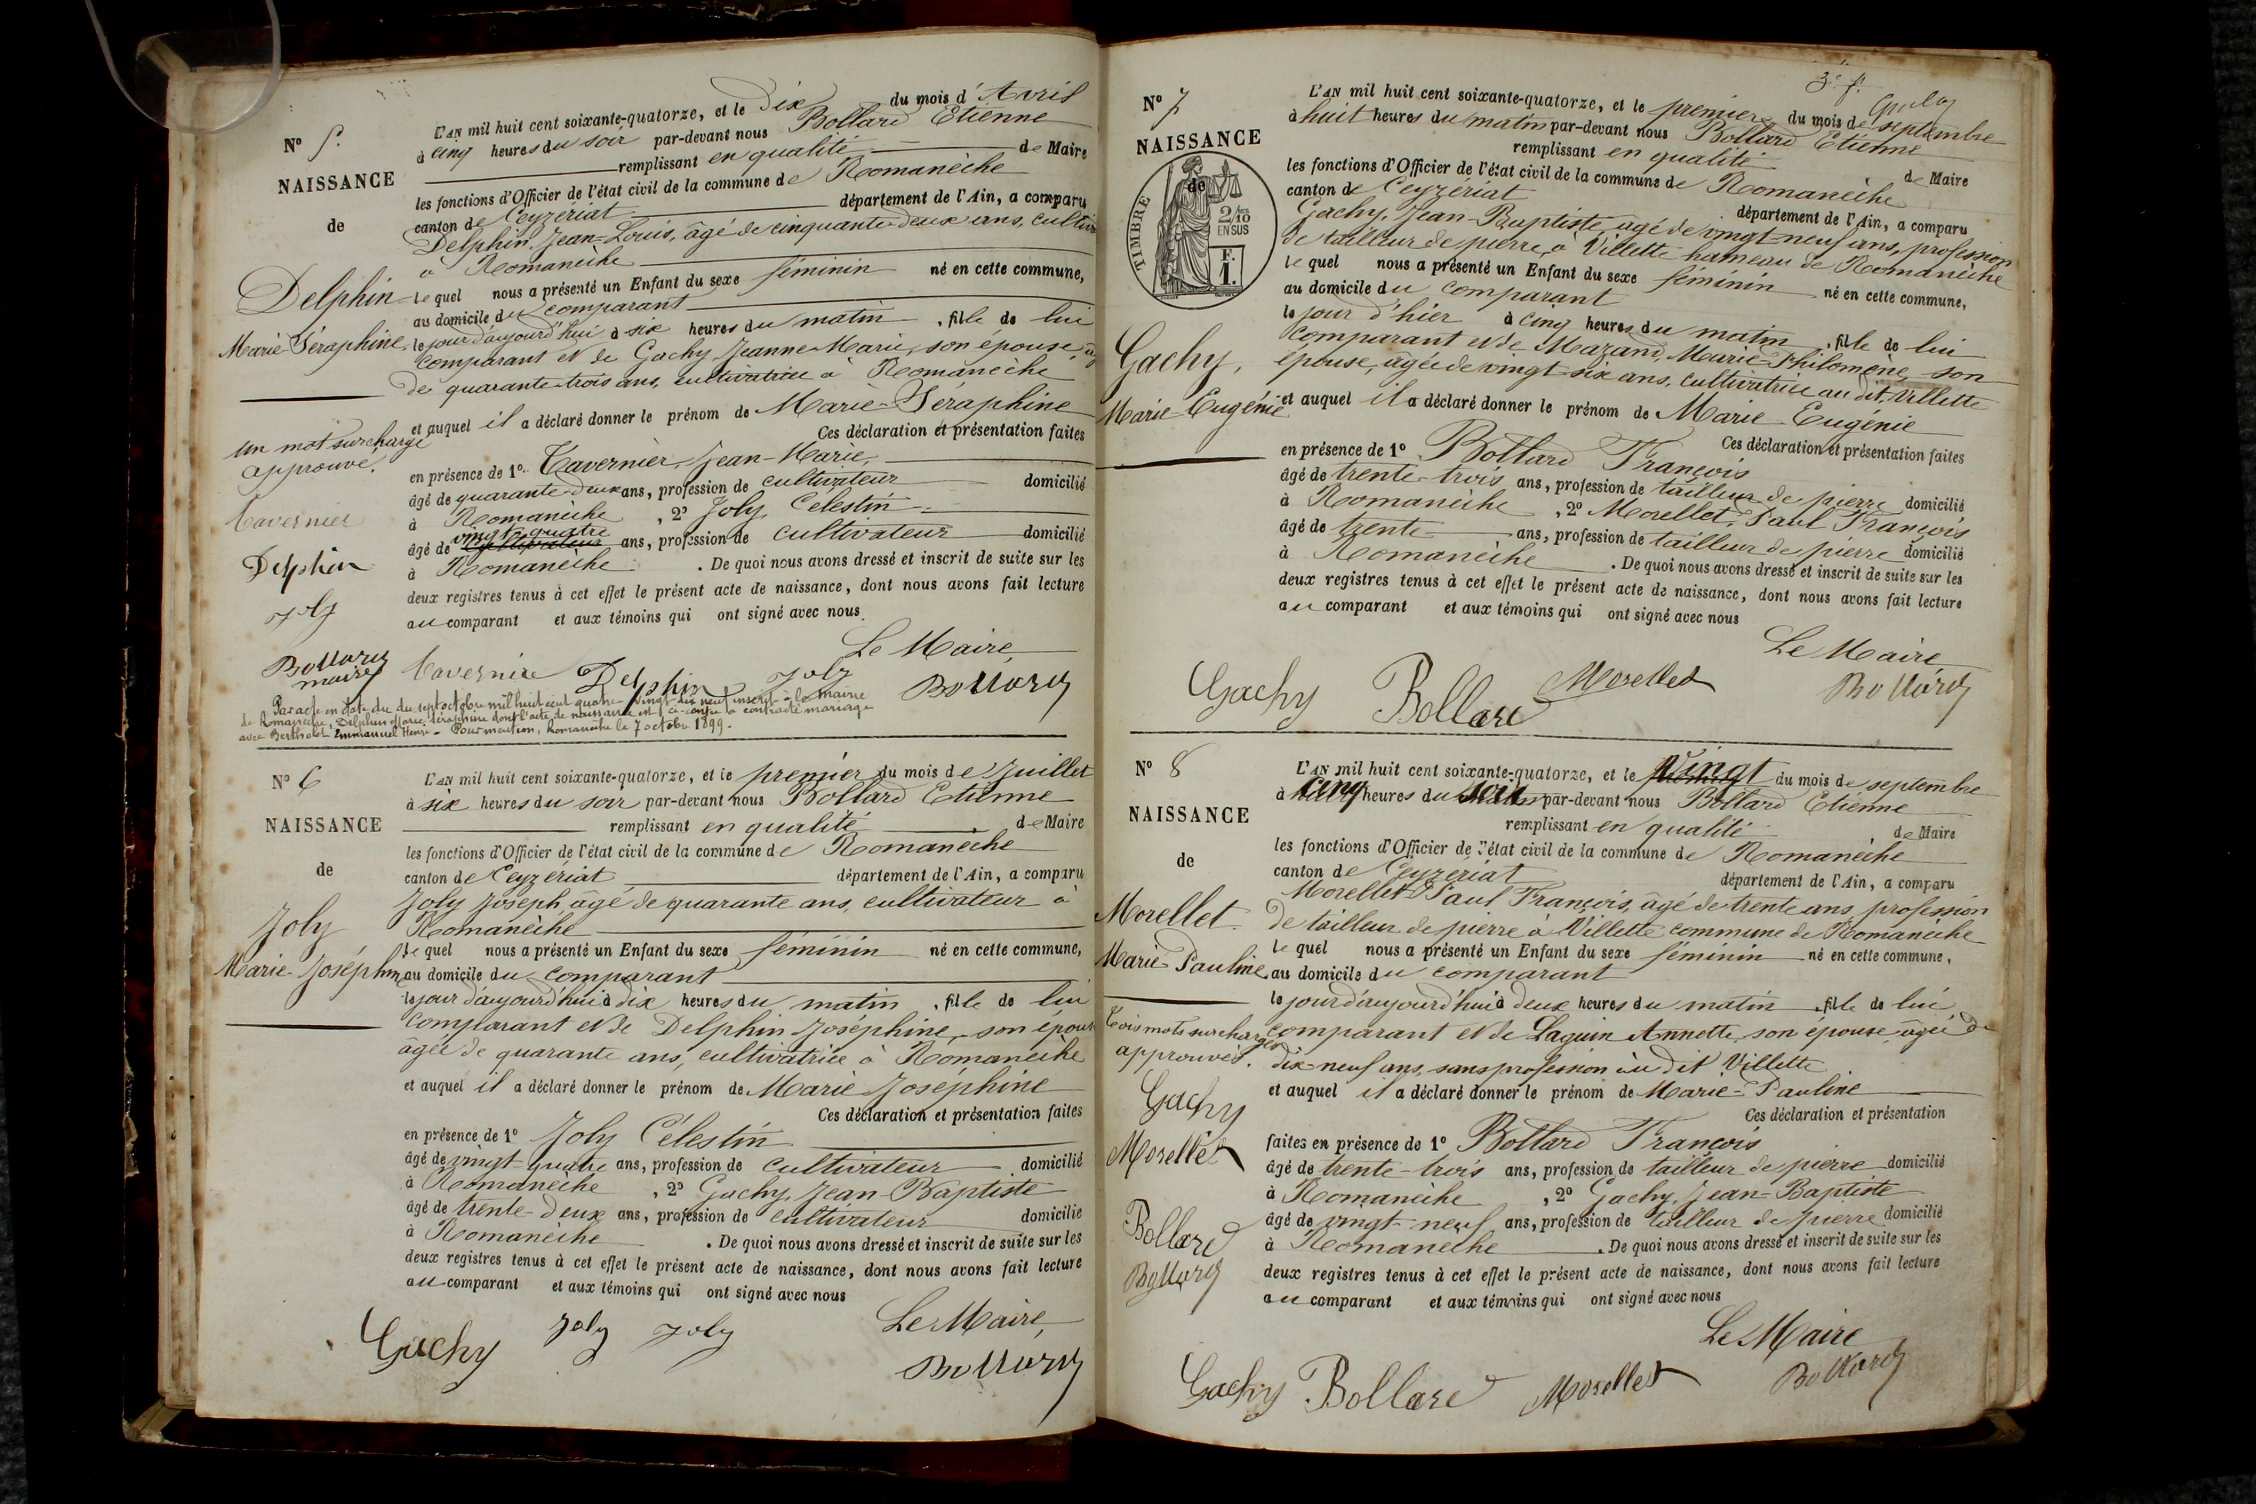 N° 5.
NAISSANCE
de
Delphin
Marie-Séraphine
Un mot surchargé
approuvé.
Tavernier
Delphin
Joly
Bollard
maire
L'AN mil huit cent soixante-quatorze, et le dix du mois d'Avril
à cinq heures du soir par-devant nous Bollard Etienne
remplissant en qualité de Maire
les fonctions d'Officier de l'état civil de la commune de Romanèche
canton de Ceyzériat département de l'Ain, a comparu
Delphin Jean-Louis, âgé de cinquante-deux ans, cultiv
à Romanèche
le quel nous a présenté un Enfant du sexe féminin né en cette commune,
au domicile du comparant
le jour d'aujourd'hui à six heures du matin, fille de lui
comparant et de Gachy Jeanne-Marie, son épouse, âg
de quarante-trois ans, cultivatrice à Romanèche
et auquel il a déclaré donner le prénom de Marie-Séraphine
Ces déclaration et présentation faites
en présence de 1° Tavernier, Jean-Marie,
âgé de quarante-deux ans, profession de cultivateur domicilié
à Romanèche, 2° Joly Célestin
vingt-quatre
âgé de cultivateur ans, profession de cultivateur domicilié
à Romanèche. De quoi nous avons dressé et inscrit de suite sur les
deux registres tenus à cet effet le présent acte de naissance, dont nous avons fait lecture
au comparant et aux témoins qui ont signé avec nous.
Le Maire,
Tavernier Delphin Joly Bollard
Par acte en date du sept octobre mil huit cent quatre-vingt-dix neuf inscrit à la mairie
de Romanèche, Delphin Marie Séraphine dont l'acte de naissance est ci-contre a contracté mariage
avec Berthelot Emmanuel Henri. Pour mention, Romanèche le 7 octobre 1899.
N° 6
NAISSANCE
de
Joly
Marie-Joséphine
L'AN mil huit cent soixante-quatorze, et le premier du mois de Juillet
à six heures du soir par-devant nous Bollard Etienne
remplissant en qualité de Maire
les fonctions d'Officier de l'état civil de la commune de Romanèche
canton de Ceyzériat département de l'Ain, a comparu
Joly Joseph âgé de quarante ans, cultivateur à
Romanèche
le quel nous a présenté un Enfant du sexe féminin né en cette commune,
au domicile du comparant
le jour d'aujourd'hui à dix heures du matin, fille de lui
comparant et de Delphin Joséphine, son épouse
âgée de quarante ans, cultivatrice à Romanèche
et auquel il a déclaré donner le prénom de Marie Joséphine
Ces déclaration et présentation faites
en présence de 1° Joly Célestin
âgé de vingt-quatre ans, profession de cultivateur domicilié
à Romanèche, 2° Gachy, Jean-Baptiste
âgé de trente-deux ans, profession de cultivateur domicilié
à Romanèche. De quoi nous avons dressé et inscrit de suite sur les
deux registres tenus à cet effet le présent acte de naissance, dont nous avons fait lecture
au comparant et aux témoins qui ont signé avec nous
Le Maire,
Gachy Joly Joly Bollard
3e f.
N° 7
NAISSANCE
de
TIMBRE
2/10
EN SUS
F.
1.
Gachy,
Marie-Eugénie
L'AN mil huit cent soixante-quatorze, et le premier du mois de septembre
à huit heures du matin par-devant nous Bollard Etienne
remplissant en qualité de Maire
les fonctions d'Officier de l'état civil de la commune de Romanèche
canton de Ceyzériat département de l'Ain, a comparu
Gachy, Jean-Baptiste, âgé de vingt-neuf ans, profession
de tailleur de pierre, à Villette hameau de Romanèche
le quel nous a présenté un Enfant du sexe féminin né en cette commune,
au domicile du comparant
le jour d'hier à cinq heures du matin, fille de lui
comparant et de Mazand Marie-Philomène, son
épouse, âgée de vingt-six ans, cultivatrice au dit, Villette
et auquel il a déclaré donner le prénom de Marie Eugénie
Ces déclaration et présentation faites
en présence de 1° Bollard François
âgé de trente-trois ans, profession de tailleur de pierre domicilié
à Romanèche, 2° Morellet, Paul François
âgé de trente ans, profession de tailleur de pierre domicilié
à Romanèche. De quoi nous avons dressé et inscrit de suite sur les
deux registres tenus à cet effet le présent acte de naissance, dont nous avons fait lecture
au comparant et aux témoins qui ont signé avec nous
Le Maire
Gachy Bollard Morellet Bollard
N° 8
NAISSANCE
de
Morellet
Marie-Pauline
Trois mots surchargés
approuvés.
Gachy
Morellet
Bollard
Bollard
L'AN mil huit cent soixante-quatorze, et le vingt du mois de septembre
à cinq heures du soir par-devant nous Bollard Etienne
remplissant en qualité de Maire
les fonctions d'Officier de l'état civil de la commune de Romanèche
canton de Ceyzériat département de l'Ain, a comparu
Morellet Paul François, âgé de trente ans, profession
de tailleur de pierre à Villette commune de Romanèche
le quel nous a présenté un Enfant du sexe féminin né en cette commune,
au domicile du comparant
le jour d'aujourd'hui à deux heures du matin, fille de lui
comparant et de Laguin Annette, son épouse, âgée de
dix-neuf ans, sans profession au dit Villette
et auquel il a déclaré donner le prénom de Marie-Pauline
Ces déclaration et présentation
faites en présence de 1° Bollard François
âgé de trente-trois ans, profession de tailleur de pierre domicilié
à Romanèche, 2° Gachy, Jean-Baptiste
âgé de vingt-neuf ans, profession de tailleur de pierre domicilié
à Romanèche. De quoi nous avons dressé et inscrit de suite sur les
deux registres tenus à cet effet le présent acte de naissance, dont nous avons fait lecture
au comparant et aux témoins qui ont signé avec nous
Le Maire
Gachy Bollard Morellet Bollard